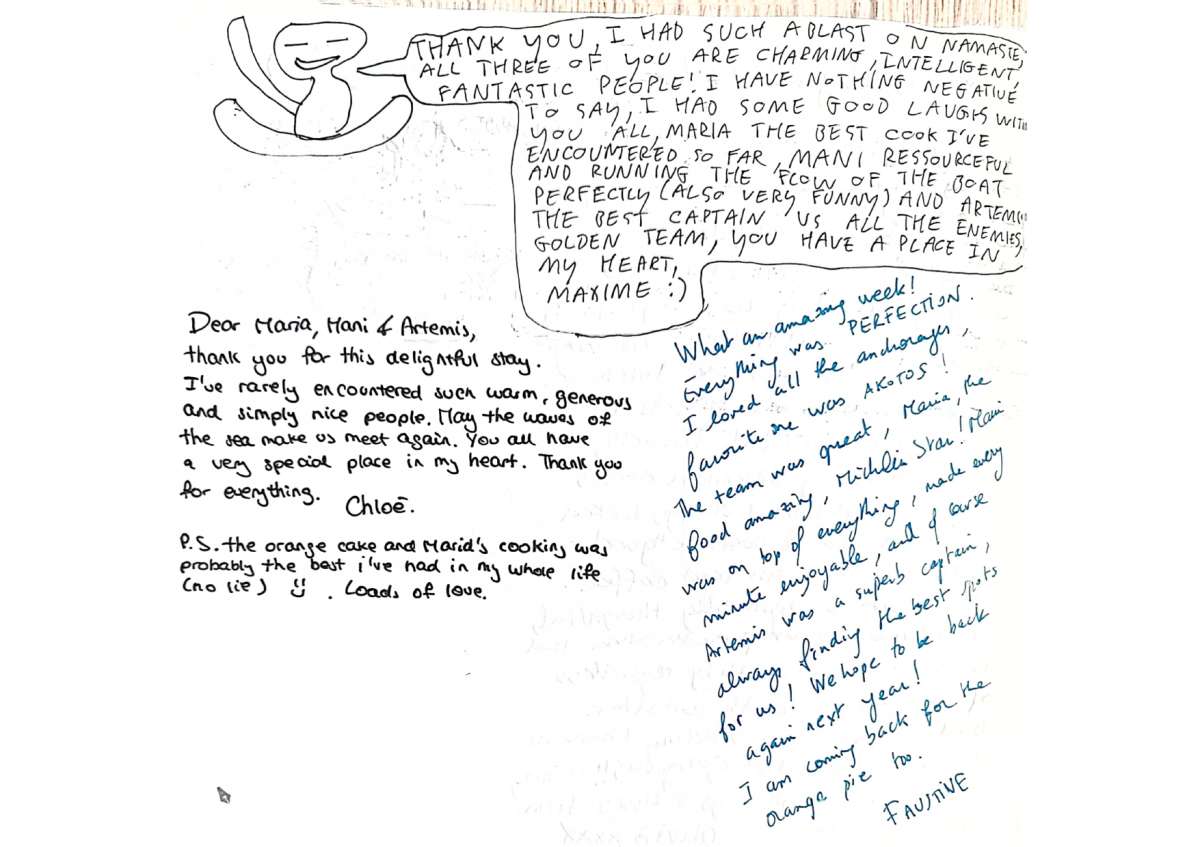 THANK YOU, I HAD SUCH A BLAST ON NAMASTE,
ALL THREE OF YOU ARE CHARMING, INTELLIGENT,
FANTASTIC PEOPLE! I HAVE NOTHING NEGATIVE
TO SAY, I HAD SOME GOOD LAUGHS WITH
YOU ALL, MARIA THE BEST COOK I'VE
ENCOUNTERED SO FAR, MANI RESSOURCEFUL
AND RUNNING THE FLOW OF THE BOAT
PERFECTLY (ALSO VERY FUNNY) AND ARTEMIS
THE BEST CAPTAIN US ALL THE ENEMIES,
GOLDEN TEAM, YOU HAVE A PLACE IN
MY HEART,
MAXIME :)
Dear Maria, Mani & Artemis,
thank you for this delightful stay.
I've rarely encountered such warm, generous
and simply nice people. May the waves of
the sea make us meet again. You all have
a very special place in my heart. Thank you
for everything.
Chloé.
P.S. the orange cake and Maria's cooking was
probably the best i've had in my whole life
(no lie) :) . Loads of love.
What an amazing week!
Everything was PERFECTION.
I loved all the anchorages,
favorite one was AKOTOS!
The team was great, Maria, the
food amazing, Michelin Star! Mani
was on top of everything, made every
minute enjoyable, and of course
Artemis was a superb captain,
always finding the best spots
for us! We hope to be back
again next year!
I am coming back for the
orange pie too.
FAUSTINE